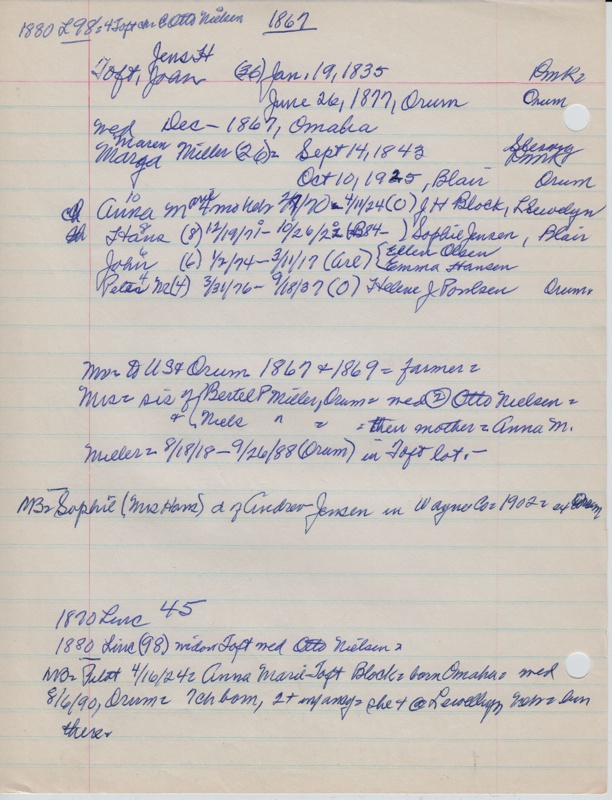 1880 L98 = 4 Toft chr C Otto Nielsen 1867
Jens H
Toft, Joan (36) Jan. 19, 1835 DmK =
June 26, 1877, Orum Orum
med Dec - 1867, Omaha
Maren
Marga Miller (26) = Sept 14, 1843 DMK
Oct 10, 1925, Blair Orum
10
Anna M 70 - 4/11/24 (O) J H Block, Llewelyn
8
Hans (8) 12/19/71 - 10/26/22 (B84-) Sophie Jensen, Blair
6
John (6) 1/2/74 - 3/11/17 (are) { Ellen Olsen
Emma Hansen
4
Peter M (4) 3/31/76 - 9/18/37 (O) Helene J Poulsen Orum.
Mr = to US & Orum 1867 & 1869 = farmer =
Mrs = sis of Bertel P Miller, Orum = med (2) Otto Nielsen =
& Niels " = = their mother = Anna M.
Miller = 8/18/18 - 9/26/88 (Orum) in Toft lot. -
MB = Sophie (Mrs Hans) d of Andrew Jensen in Wayne Co = 1902 = ex Orum
1870 Linc 45
1880 Linc (98) widow Toft med Otto Nielsen =
MB = Pilot 4/16/24 = Anna Marie Toft Block = born Omaha = med
8/6/90, Orum = 7 ch born, 2 + infancy = she + @ Lewellyn Neb = bur
there.